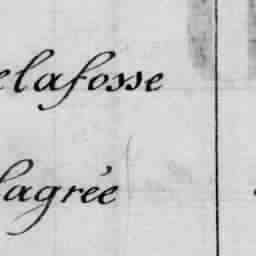 elafosse
lagrée